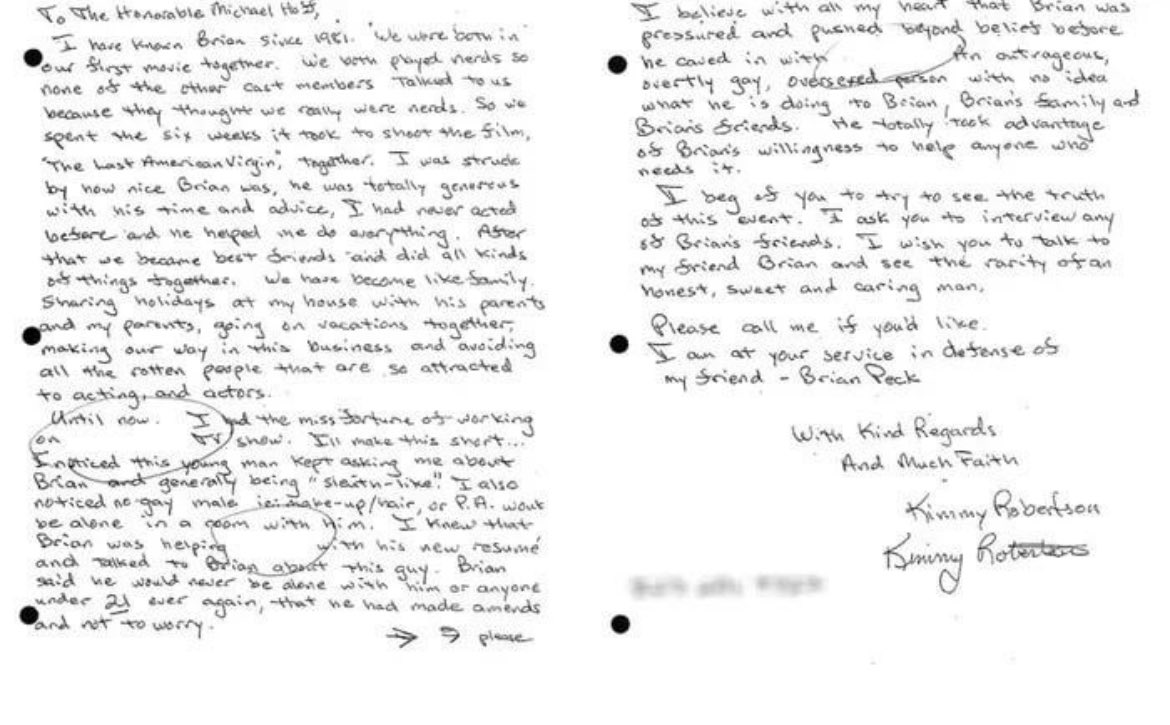 To The Honorable Michael Hoff,
I have known Brian since 1981. We were both in
our first movie together. We both played nerds so
none of the other cast members Talked to us
because they thought we really were nerds. So we
spent the six weeks it took to shoot the film,
"The Last American Virgin," together. I was struck
by how nice Brian was, he was totally generous
with his time and advice, I had never acted
before and he helped me do everything. After
that we became best friends and did all kinds
of things together. We have become like family.
Sharing holidays at my house with his parents
and my parents, going on vacations together,
making our way in this business and avoiding
all the rotten people that are so attracted
to acting, and actors.
Until now. I had the missfortune of working
on TV show. I'll make this short...
I noticed this young man kept asking me about
Brian and generally being "sleuth-like." I also
noticed no gay male ie: make-up/hair, or P.A. would
be alone in a room with him. I knew that
Brian was helping with his new resumé
and talked to Brian about this guy. Brian
said he would never be alone with him or anyone
under 21 ever again, that he had made amends
and not to worry.
→ please
I believe with all my heart that Brian was
pressured and pushed beyond belief before
he caved in with An outrageous,
overtly gay, oversexed person with no idea
what he is doing to Brian, Brian's family and
Brian's friends. He totally took advantage
of Brian's willingness to help anyone who
needs it.
I beg of you to try to see the truth
of this event. I ask you to interview any
of Brian's friends. I wish you to talk to
my friend Brian and see the rarity of an
honest, sweet and caring man.
Please call me if you'd like.
I am at your service in defense of
my friend - Brian Peck
With Kind Regards
And Much Faith
Kimmy Robertson
Kimmy Robertson